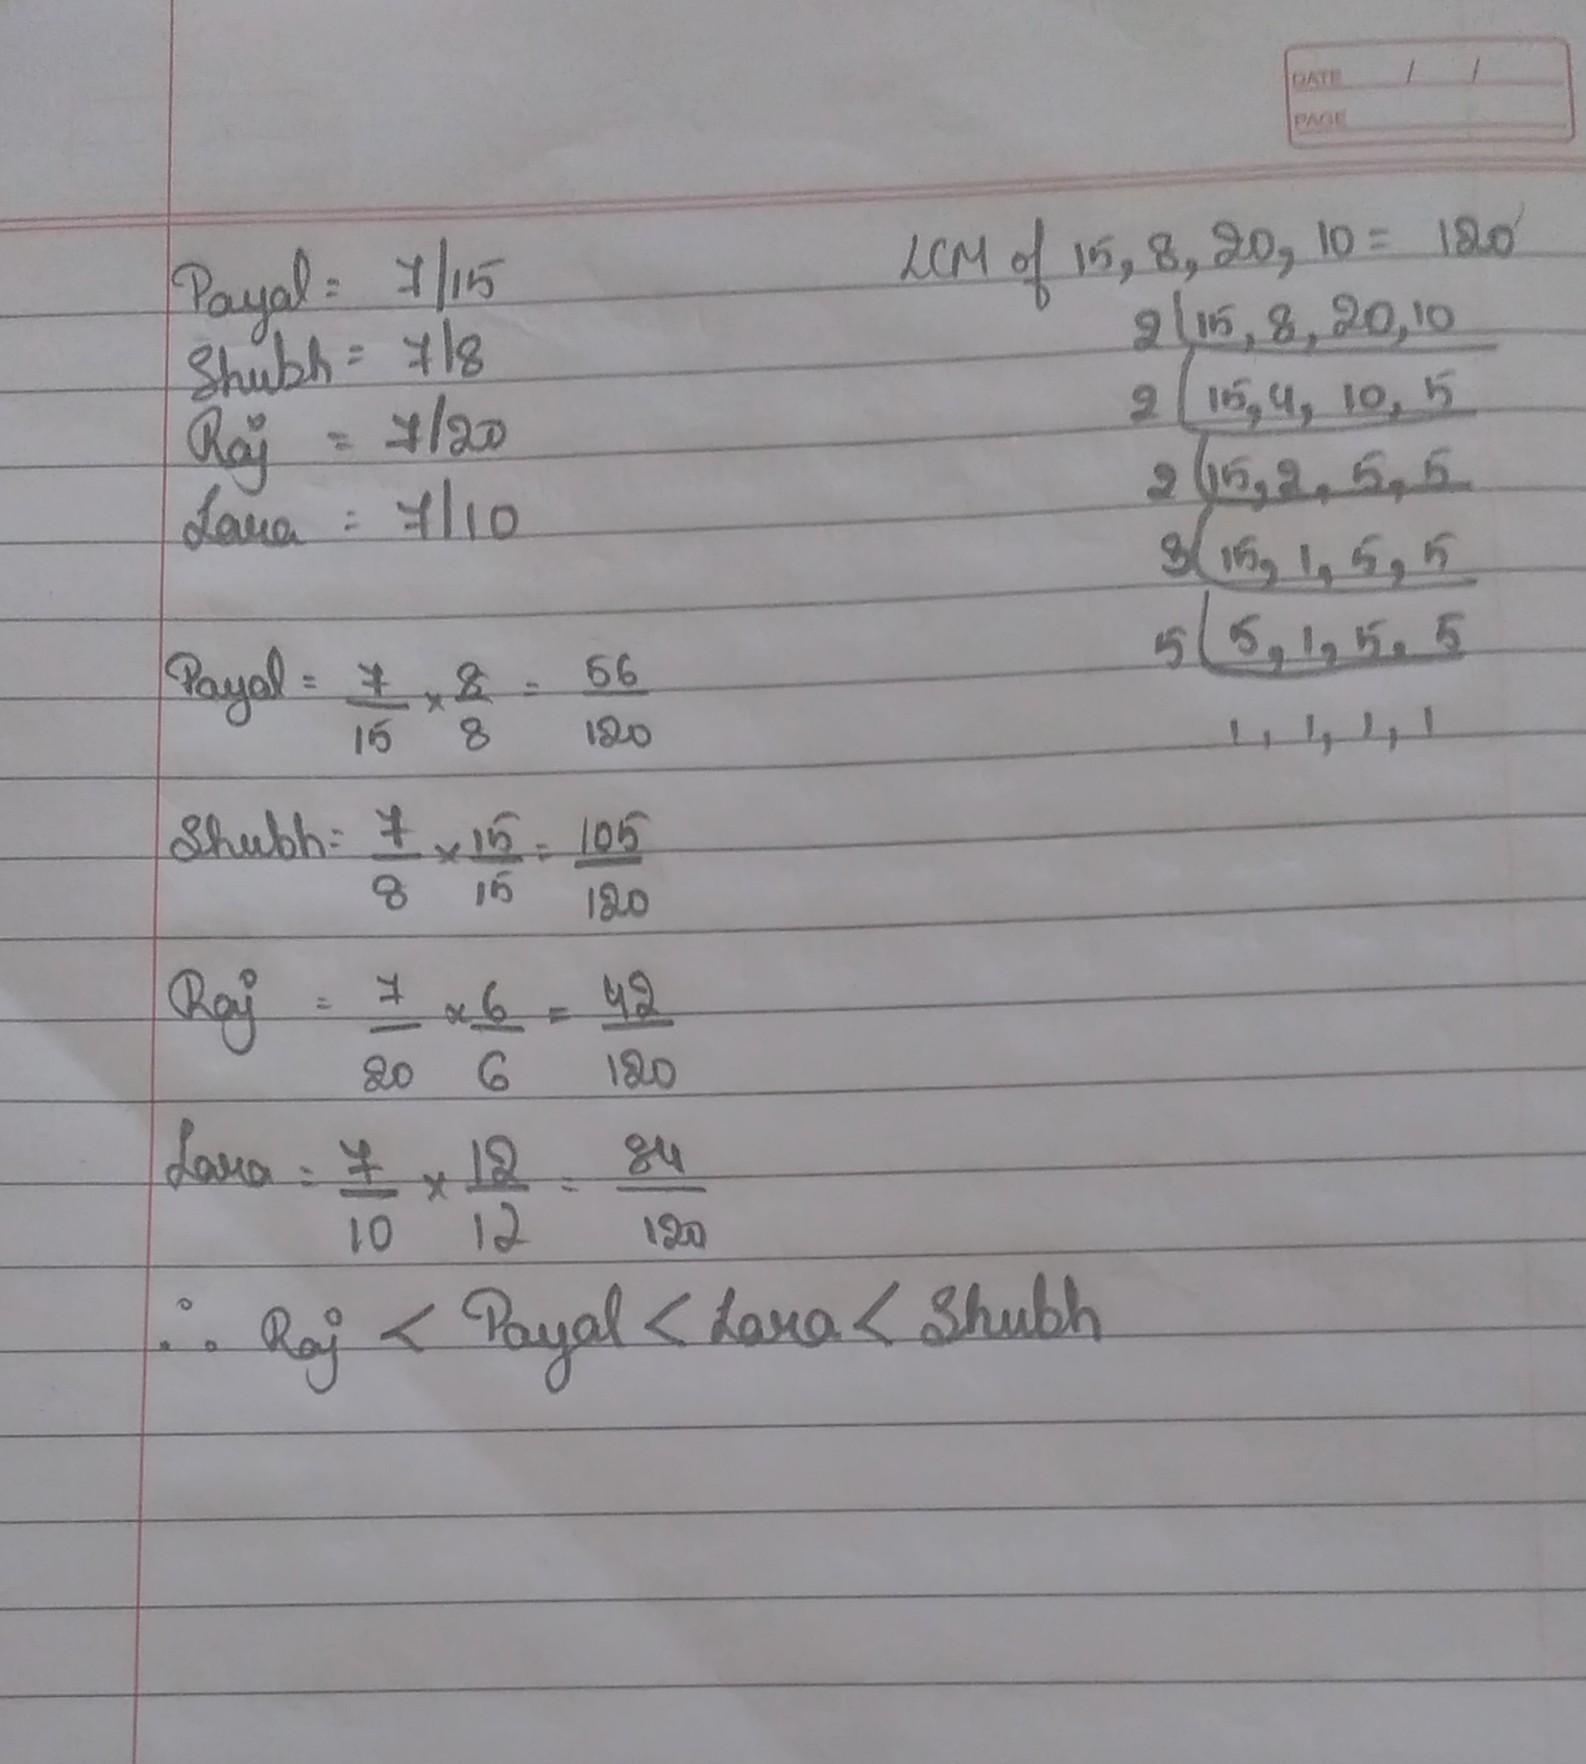 DATE / /
PAGE
Payal = 7/15
Shubh = 7/8
Raj = 7/20
Lara = 7/10
LCM of 15, 8, 20, 10 = 120
2 | 15, 8, 20, 10
2 | 15, 4, 10, 5
2 | 15, 2, 5, 5
3 | 15, 1, 5, 5
5 | 5, 1, 5, 5
1, 1, 1, 1
Payal = 7/15 × 8/8 = 56/120
Shubh = 7/8 × 15/15 = 105/120
Raj = 7/20 × 6/6 = 42/120
Lara = 7/10 × 12/12 = 84/120
∴ Raj < Payal < Lara < Shubh